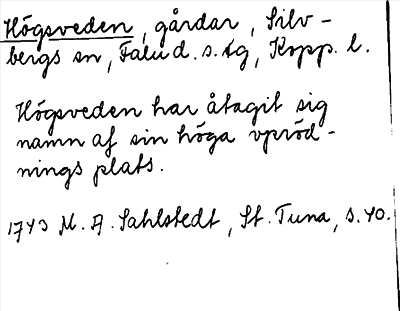 Högsveden, gårdar, Silv-
bergs sn, Falu d. s. tg, Kopp. l.
Högsveden har åtagit sig
namn af sin höga vpröd-
nings plats.
1743 M. A. Sahlstedt, St. Tuna, s. 40.